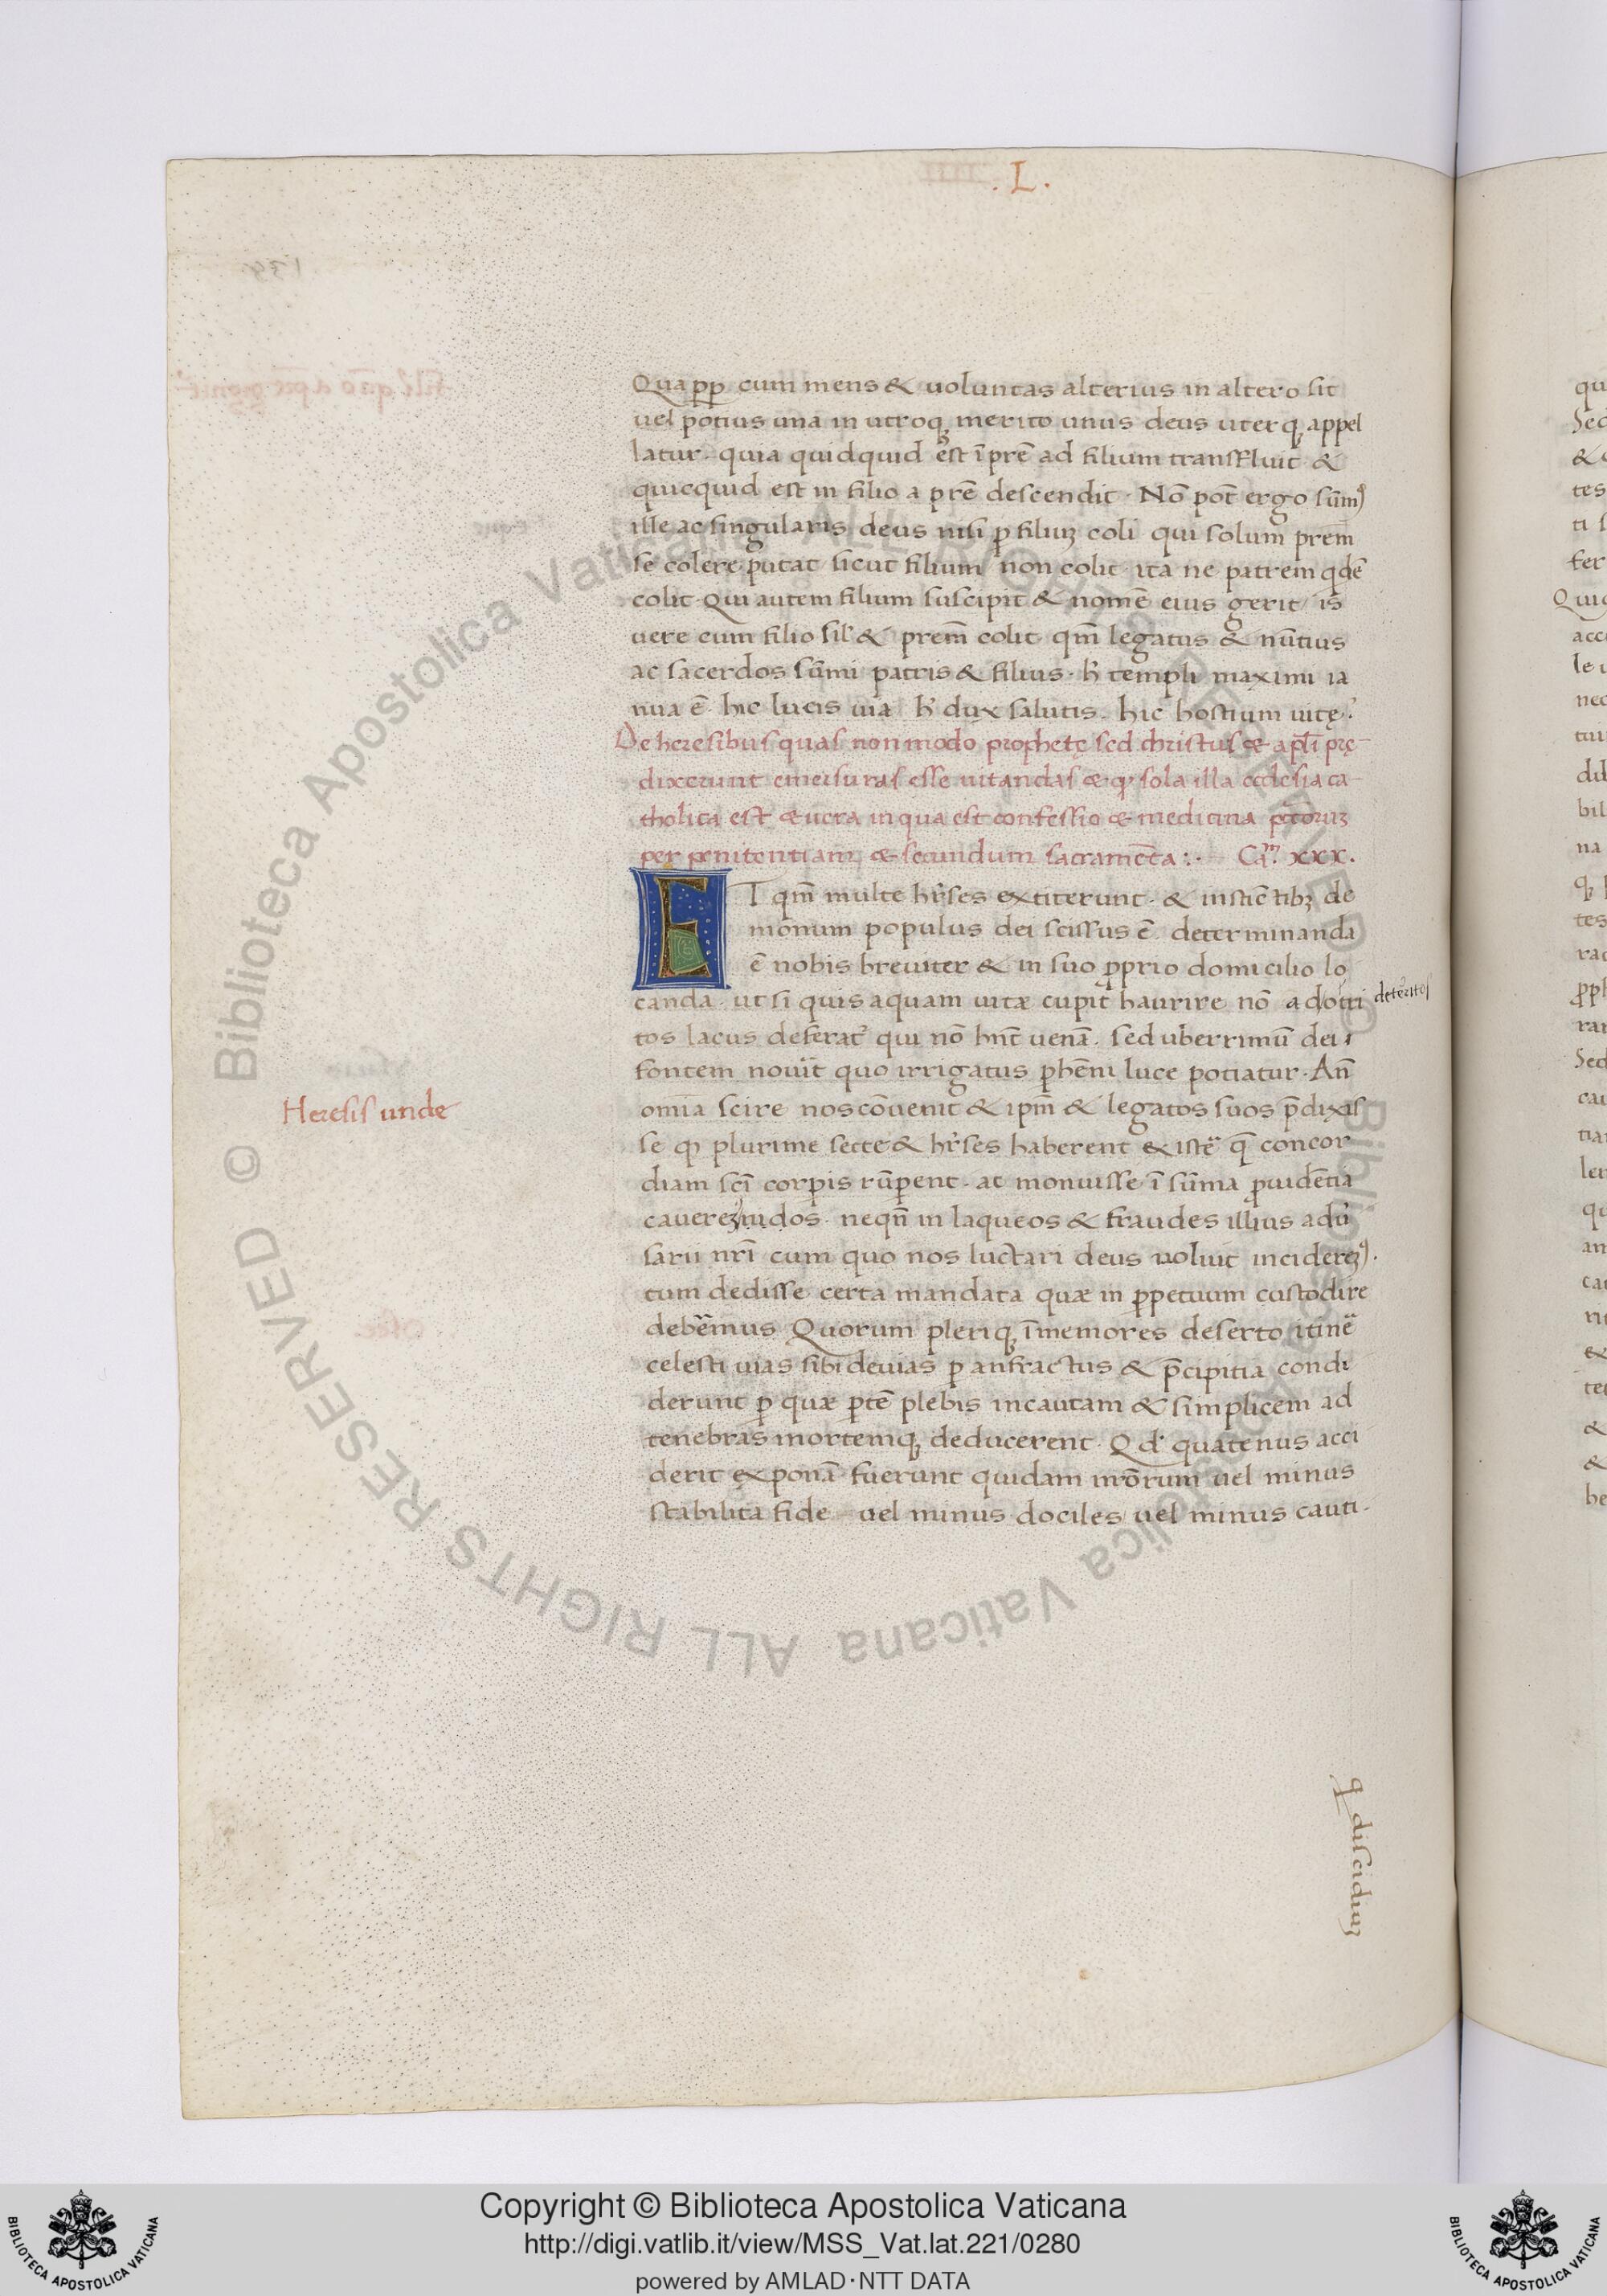 . L .
Quaꝓꝑ cum mens & uoluntas alterius in altero sit
uel potius una in utroqꝫ merito unus deus uterqꝫ appel
latur · quia quidquid est ī prē ad filium transfluit · &
quicquid est in filio a prē descendit · Nō pōt ergo sūmꝰ
ille ac singularis deus nisi ꝑ filiuꝫ coli qui solum prem̄
se colere putat sicut filium non colit · ita ne patrem qdē
colit · Qui autem filium suscipit & nomē eius gerit / is
uere cum filio sil' & prem̄ colit qm̄ legatus & nūtius
ac sacerdos sūmi patris & filius · h' templi maximi ia
nua ē · hic lucis uia h' dux salutis . hic hostium uitę :'
De heresibus quas non modo prophetę sed christus & apl'i prę
dixerunt emersuras esse uitandas & qꝫ sola illa ecclesia ca
tholica est & uera in qua est confessio & medicina pctōruꝫ
per penitentiam & secundum sacramēta : · Cam̄ . xxx .
ET qm̄ multe hr̄ses extiterunt · & instīctibꝫ de
monum populus dei scissus ē · determinanda
ē nobis breuiter & in suo ꝓprio domicilio lo
canda · ut si quis aquam uitæ cupit haurire nō ad otri
deteritos
tos lacus deferat' qui nō hn̄t uenā . sed uberrimū dei
fontem nouit quo irrigatus ꝑhēni luce potiatur . An̄
Heresis unde
omīa scire nos cōuenit & ipm̄ & legatos suos p̄dixis
se qꝫ plurime secte & hr̄ses haberent existē q̄ concor
diam scī corpis rūꝑent · ac monuisse ī sūma ꝓuidētia
neqn̄ in laqueos & fraudes illius adu'
sarii nr̄i cum quo nos luctari deus uoluit incidereꝫꝰ .
tum dedisse certa mandata quæ in ꝑpetuum custodire
debēmus Quorum pleriqꝫ īmemores deserto itinē
celesti uias sibi deuias ꝑ anfractus & p̄cipitia condi
derunt ꝑ quæ ꝑtē plebis incautam & simplicem ad
tenebras mortemqꝫ deducerent · Qd' quatenus acci
derit exponā · fuerunt quidam nrōrum uel minus
stabilita fide uel minus dociles uel minus cauti ·
q discidiuꝫ
© Biblioteca Apostolica Vaticana ALL RIGHTS RESERVED
© Biblioteca Apostolica Vaticana ALL RIGHTS RESERVED
BIBLIOTECA APOSTOLICA VATICANA
Copyright © Biblioteca Apostolica Vaticana
http://digi.vatlib.it/view/MSS_Vat.lat.221/0280
powered by AMLAD·NTT DATA
BIBLIOTECA APOSTOLICA VATICANA